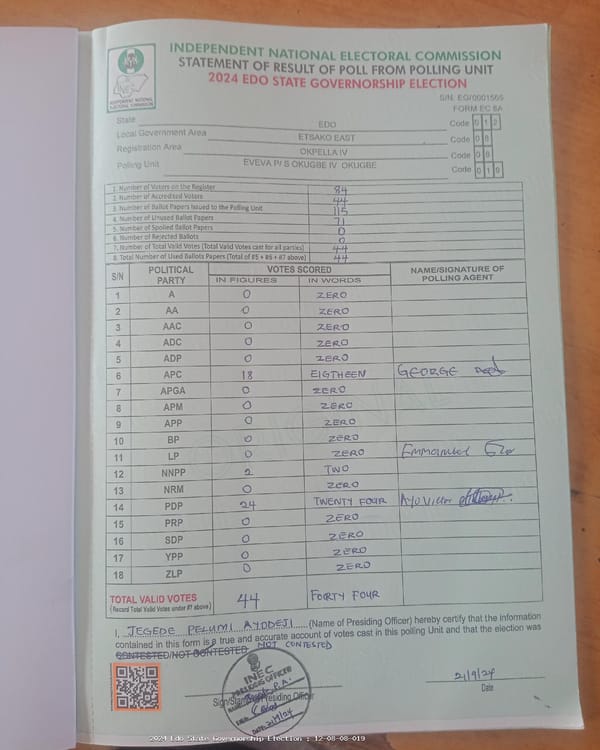 INDEPENDENT NATIONAL ELECTORAL COMMISSION
STATEMENT OF RESULT OF POLL FROM POLLING UNIT
2024 EDO STATE GOVERNORSHIP ELECTION
INDEPENDENT NATIONAL
ELECTORAL COMMISSION
S/N. EG/0001565
FORM EC 8A
State EDO Code 0 1 2
Local Government Area ETSAKO EAST Code 0 8
Registration Area OKPELLA IV Code 0 8
Polling Unit EVEVA P/ S OKUGBE IV OKUGBE Code 0 1 9
1. Number of Voters on the Register 84
2. Number of Accredited Voters 44
3. Number of Ballot Papers Issued to the Polling Unit 115
4. Number of Unused Ballot Papers 71
5. Number of Spoiled Ballot Papers 0
6. Number of Rejected Ballots 0
7. Number of Total Valid Votes (Total Valid Votes cast for all parties) 44
8. Total Number of Used Ballots Papers (Total of #5 + #6 + #7 above) 44
S/N POLITICAL PARTY VOTES SCORED NAME/SIGNATURE OF POLLING AGENT
IN FIGURES IN WORDS
1 A 0 ZERO
2 AA 0 ZERO
3 AAC 0 ZERO
4 ADC 0 ZERO
5 ADP 0 ZERO
6 APC 18 EIGTHEEN GEORGE
7 APGA 0 ZERO
8 APM 0 ZERO
9 APP 0 ZERO
10 BP 0 ZERO
11 LP 0 ZERO Emmanuel
12 NNPP 2 TWO
13 NRM 0 ZERO
14 PDP 24 TWENTY FOUR
15 PRP 0 ZERO
16 SDP 0 ZERO
17 YPP 0 ZERO
18 ZLP 0 ZERO
TOTAL VALID VOTES 44 FORTY FOUR
(Record Total Valid Votes under #7 above)
I, JEGEDE PELUMI AYODEJI (Name of Presiding Officer) hereby certify that the information
contained in this form is a true and accurate account of votes cast in this polling Unit and that the election was
CONTESTED/NOT CONTESTED NOT CONTESTED
INEC
PRESIDING OFFICER
Sign/Stamp of Presiding Officer
DATE: 21/9/24
21/9/24
Date
2024 Edo State Governorship Election : 12-08-08-019